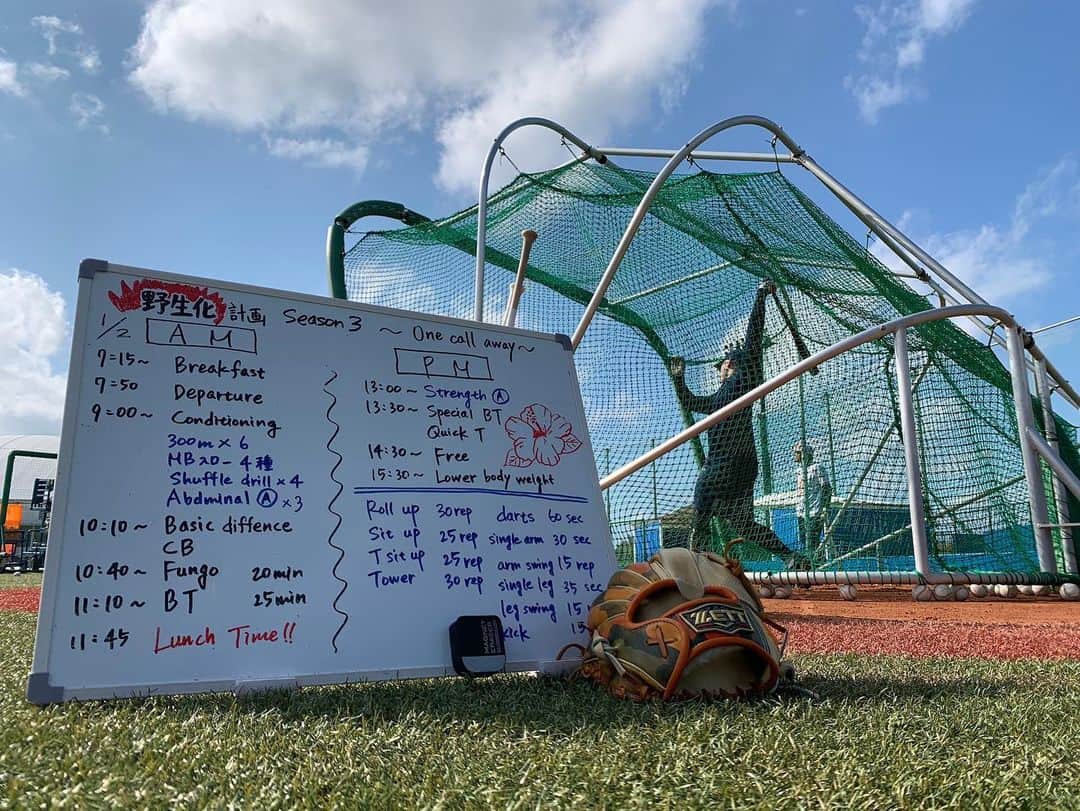 野生化計画 Season 3 ～ One call away～
1/2 AM
7=15～ Breakfast
7=50 Departure
9=00～ Conditioning
300m×6
MBスロー4種
Shuffle drill×4
Abdminal Ⓐ×3
10:10～ Basic diffence
CB
10:40～ Fungo 20min
11:10～ BT 25min
11:45 Lunch Time!!
PM
13=00～ Strength Ⓐ
13:30～ Special BT
Quick T
14:30～ Free
15:30～ Lower body weight
Roll up 30rep darts 60sec
Sit up 25rep single arm 30sec
T sit up 25rep arm swing 15rep
Tower 30rep single leg 35sec
leg swing 15
kick 15
ZETT